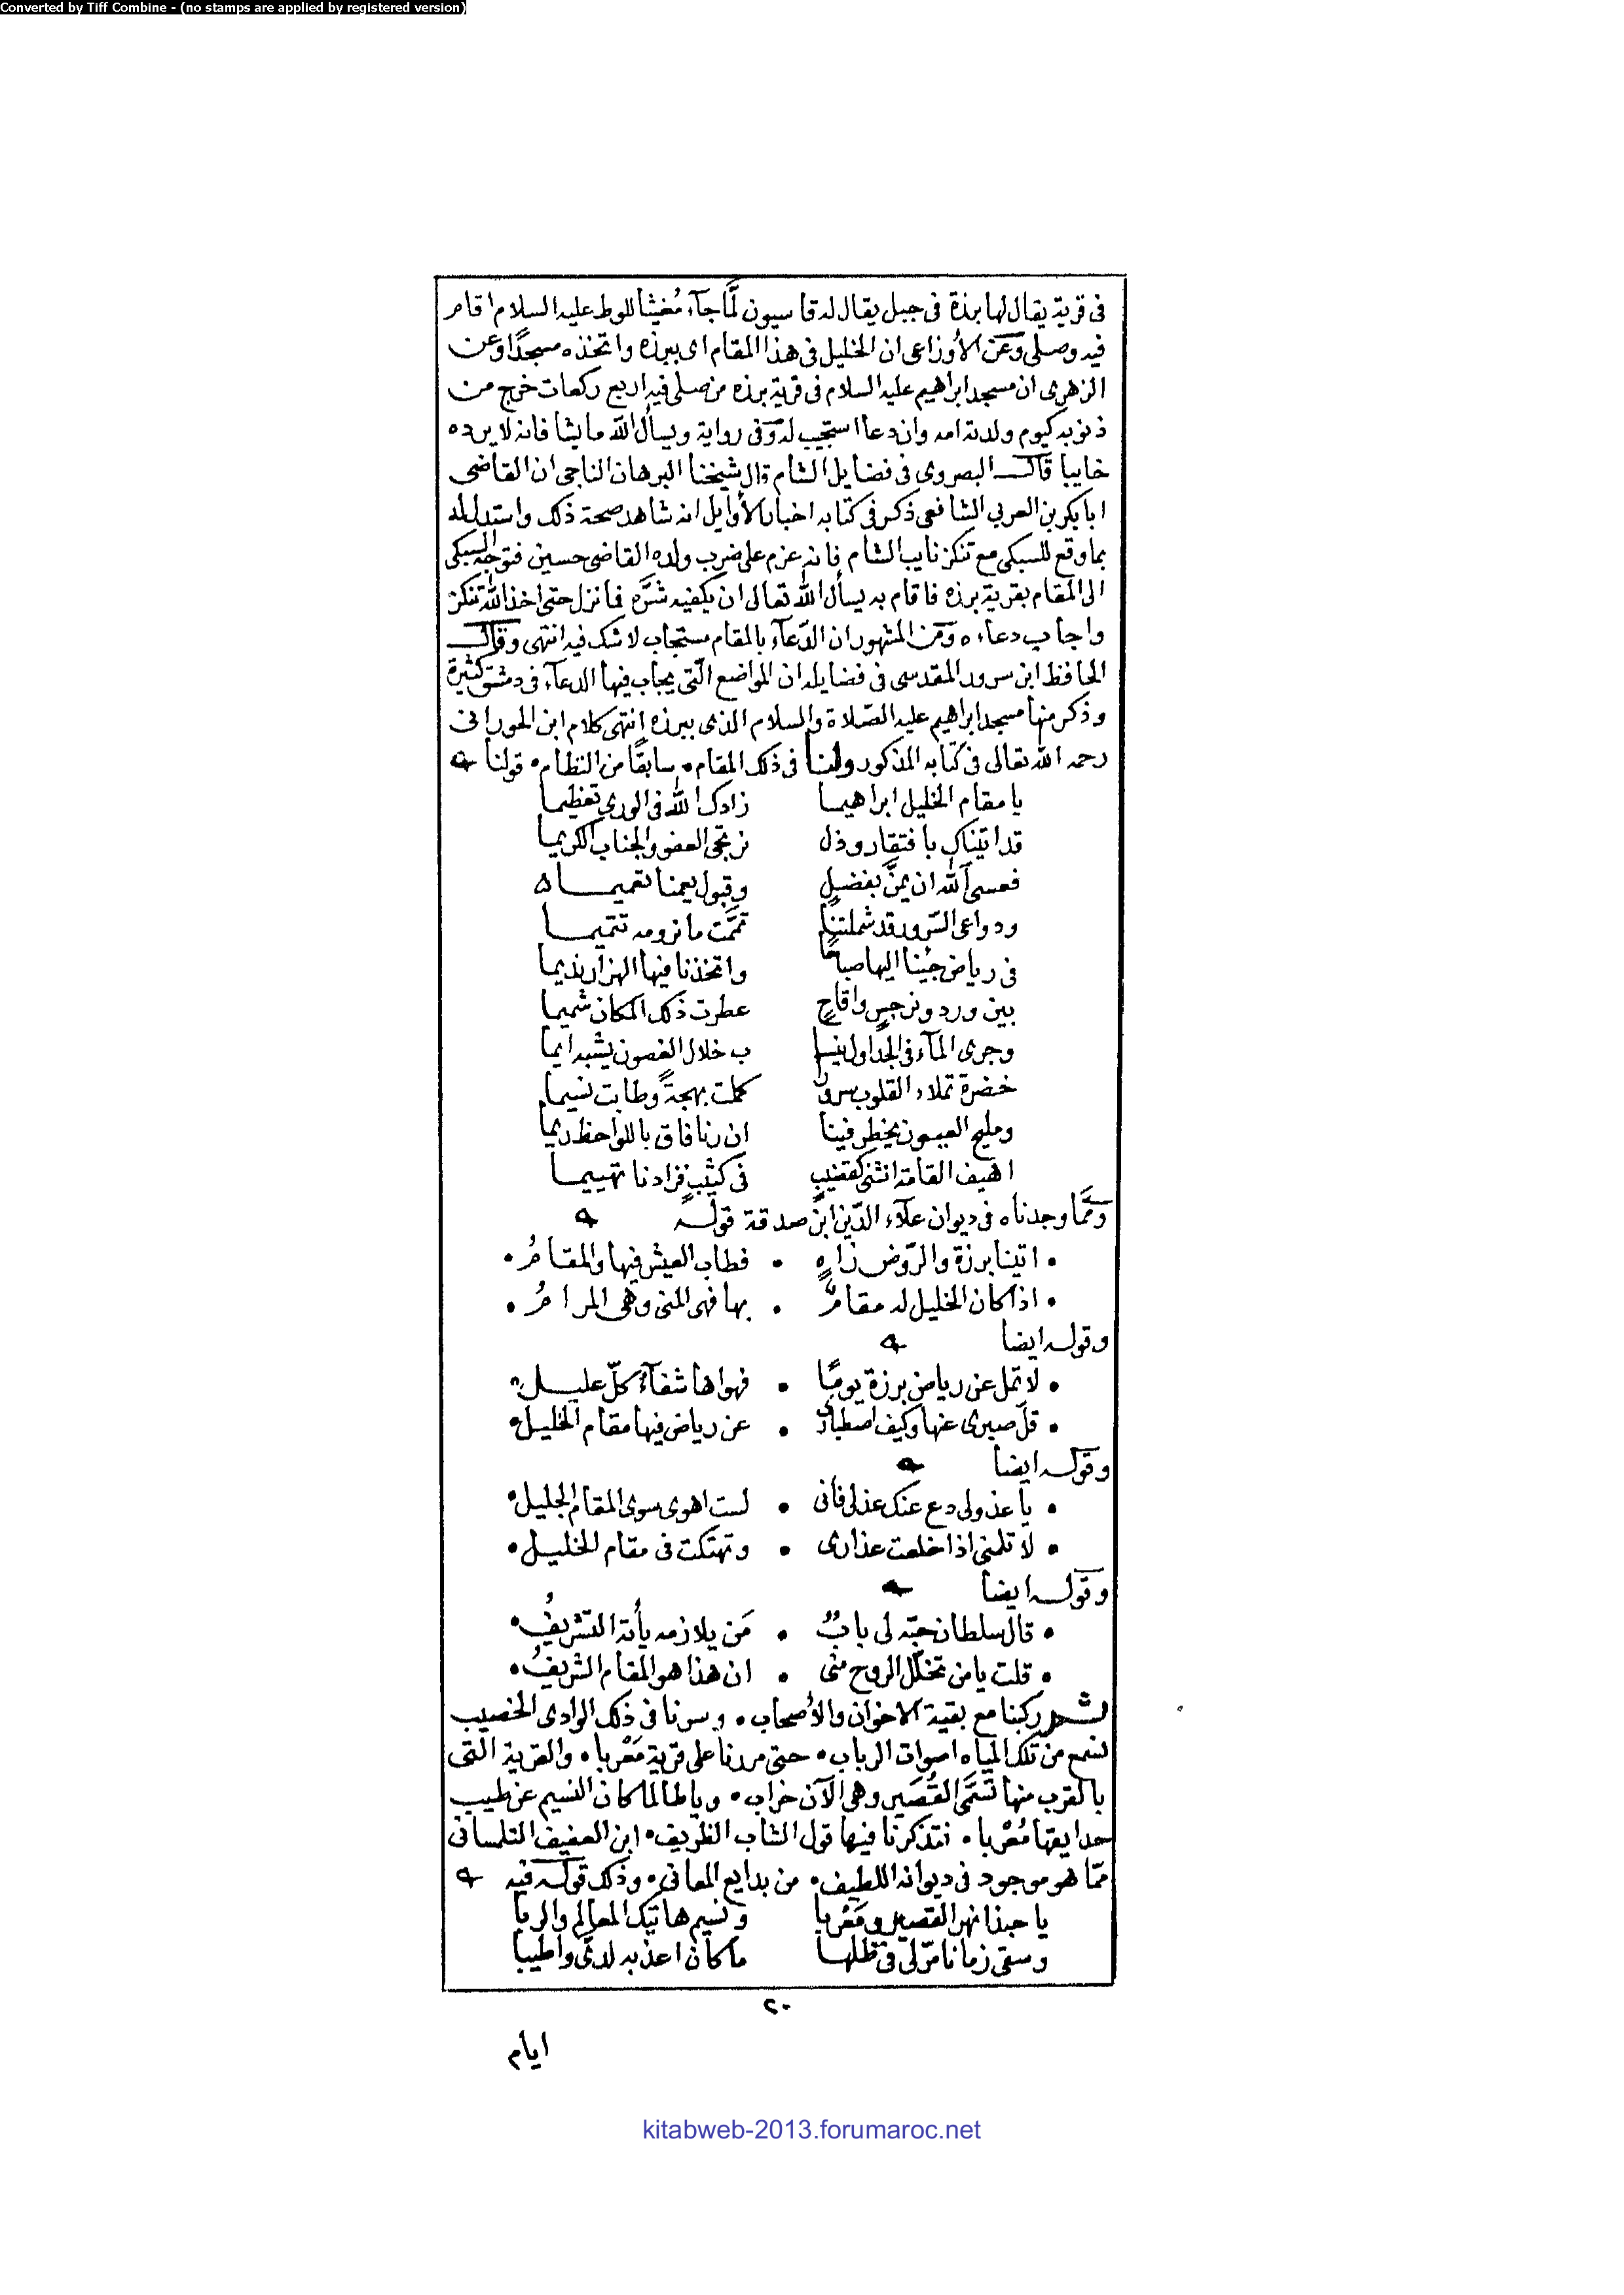 Converted by Tiff Combine - (no stamps are applied by registered version)
فى قرية يقال لها برزة فى جبل يقال له قاسيون لمَّا جآء مُغيثًا للوط عليه السلام اقام
فيه وصلى وعن الأوزاعى ان الخليل فى هذا المقام اى ببرزه واتخذه مسجدًا وعن
الزهرى ان مسجد ابراهيم عليه السلام فى قرية برزه من صلى فيه اربع ركعات خرج من
ذنوبه كيوم ولدته امه وان دعا استجيب له وفى رواية ويسأل الله ما يشا فانه لا يرده
خايبا قال البصروى فى فضايل الشام قال شيخنا البرهان الناجى ان القاضى
ابا بكر بن العربى الشافعى ذكر فى كتابه اخبار الأوايل انه شاهد صحة ذلك واستدل له
بما وقع للسبكى مع تنكز نايب الشام فانه عزم على ضرب ولده القاضى حسين فتوجه السبكى
الى المقام بقرية برزه فاقام به يسأل الله تعالى ان يكفيه شرَّه فما نزل حتى اخذ الله تنكز
واجاب دعاءه ومن المشهور ان الدّعآء بالمقام مستجاب لا شك فيه انتهى وقال
الحافظ ابن سرور المقدسى فى فضايله ان المواضع الّتى يجاب فيها الدعآء فى دمشق كثيرة
وذكر منها مسجد ابراهيم عليه الصّلاة والسلام الذى ببرزه انتهى كلام ابن الحورانى
رحمه الله تعالى فى كتابه المذكور ولنا فى ذلك المقام • سابقًا من النظام • قولنا
يا مقام الخليل ابراهيما زادك الله فى الورى تعظيما
قد اتيناك بافتقار وذل نرتجى العفو والجناب الكريما
فعسى الله ان يمنَّ بفضلٍ وقبول يعمنا تعميما
ودواعى السّرور قد شملتنا تمَّمت ما نرومه تتميما
فى رياض جينا اليها صباحًا واتخذنا فيها الهزار نديما
بين ورد ونرجسٍ واقاحٍ عطرت ذلك المكان شميما
وجرى المآء فى الجداول ينسا ب خلال الغصون يشبه ايما
خضرة تملاء القلوب سرورًا كملت بهجةً وطابت نسيما
ومليح العيون يخطر فينا ان رنا فاق باللواحظ ريما
اهيف القامة انثنى كقضيبٍ فى كثيبٍ فزادنا تهييما
وممَّا وجدناه فى ديوان علآء الدّين ابن صدقة قوله
• اتينا برزة والرّوض زاهٍ • فطاب العيش فيها والمقامُ •
• اذا كان الخليل له مقامٌ • بها فهى المنى وهى المرامُ •
وقوله ايضا
• لا تمل عن رياض برزة يومًا • فهواها شفآء كلّ عليل •
• قلّ صبرى عنها وكيف اصطبارى • عن رياض فيها مقام الخليل •
وقوله ايضا
• يا عذولى دع عنك عذلى فانى • لست اهوى سوى المقام الجليل •
• لا تلمنى اذا خلعت عذارى • وتهتكت فى مقام الخليل •
وقوله ايضا
• قال سلطان حبّه لى بابٌ • مَن يلازمه يأته التشريفُ •
• قلت يا من تخلّل الروح منى • ان هذا هو المقام الشريفُ •
ثم ركبنا مع بقية الاخوان والأصحاب • وسرنا فى ذلك الوادى الخصيب
نسمع من تلك المياه اصوات الرباب • حتى مررنا على قرية مَعْربا • والقرية التى
بالقرب منها تسمَّى القُصَير وهى الآن خراب • ويا طالما كان النسيم عن طيب
حدايقها مُعْربا • فتذكرنا فيها قول الشاب الظريف • ابن العفيف التلمسانى
ممّا هو موجود فى ديوانه اللطيف • من بدايع المعانى • وذلك قوله فيه
يا حبذا نهر القصير ومَعْربا ونسيم هاتيك المعالم والربا
وسقى زمانا مرّ لى فى ظلها ما كان اعذبه لدىَّ واطيبا
٢٠
ايام
kitabweb-2013.forumaroc.net